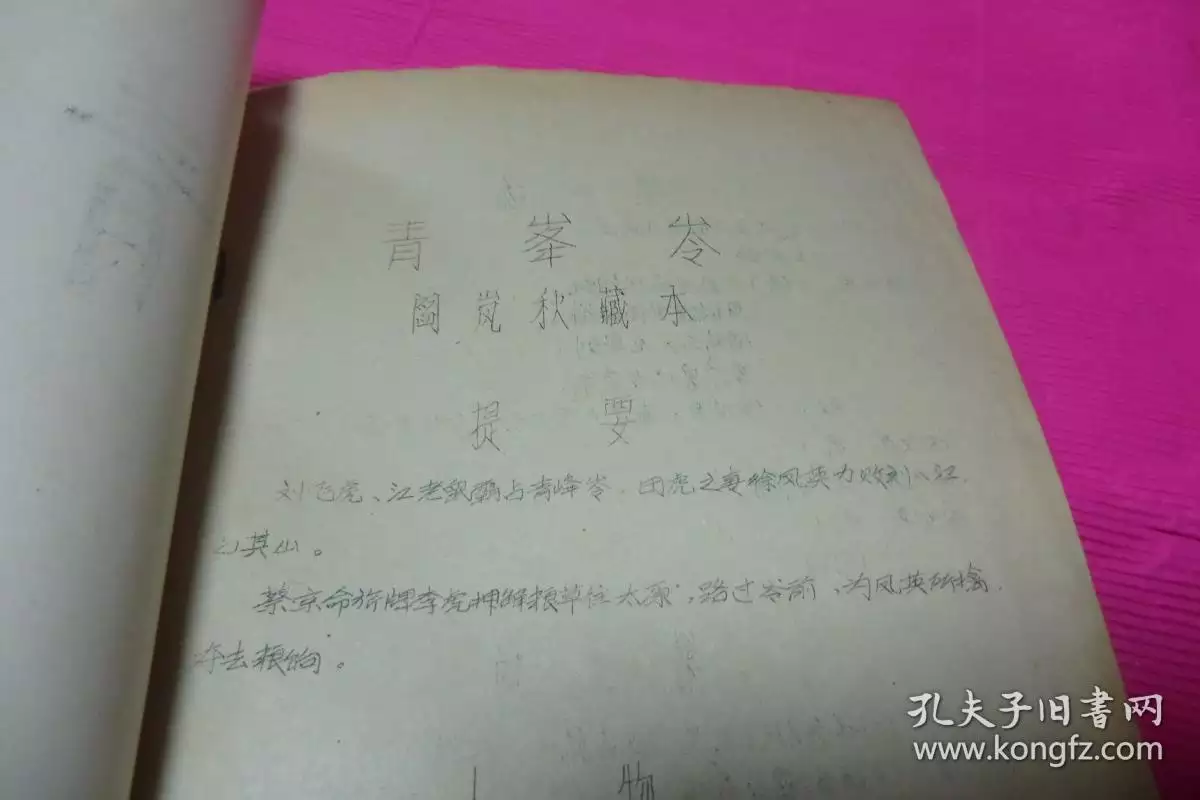 青峯岺
阎岚秋藏本
提要
刘飞虎、江老鼠霸占青峰岺，团虎之妻徐凤英力败刘、江
占其山。
蔡京命旗牌李虎押解粮草往太原，路过岺前，为凤英所擒，
夺去粮饷。
人物
孔夫子旧书网
www.kongfz.com